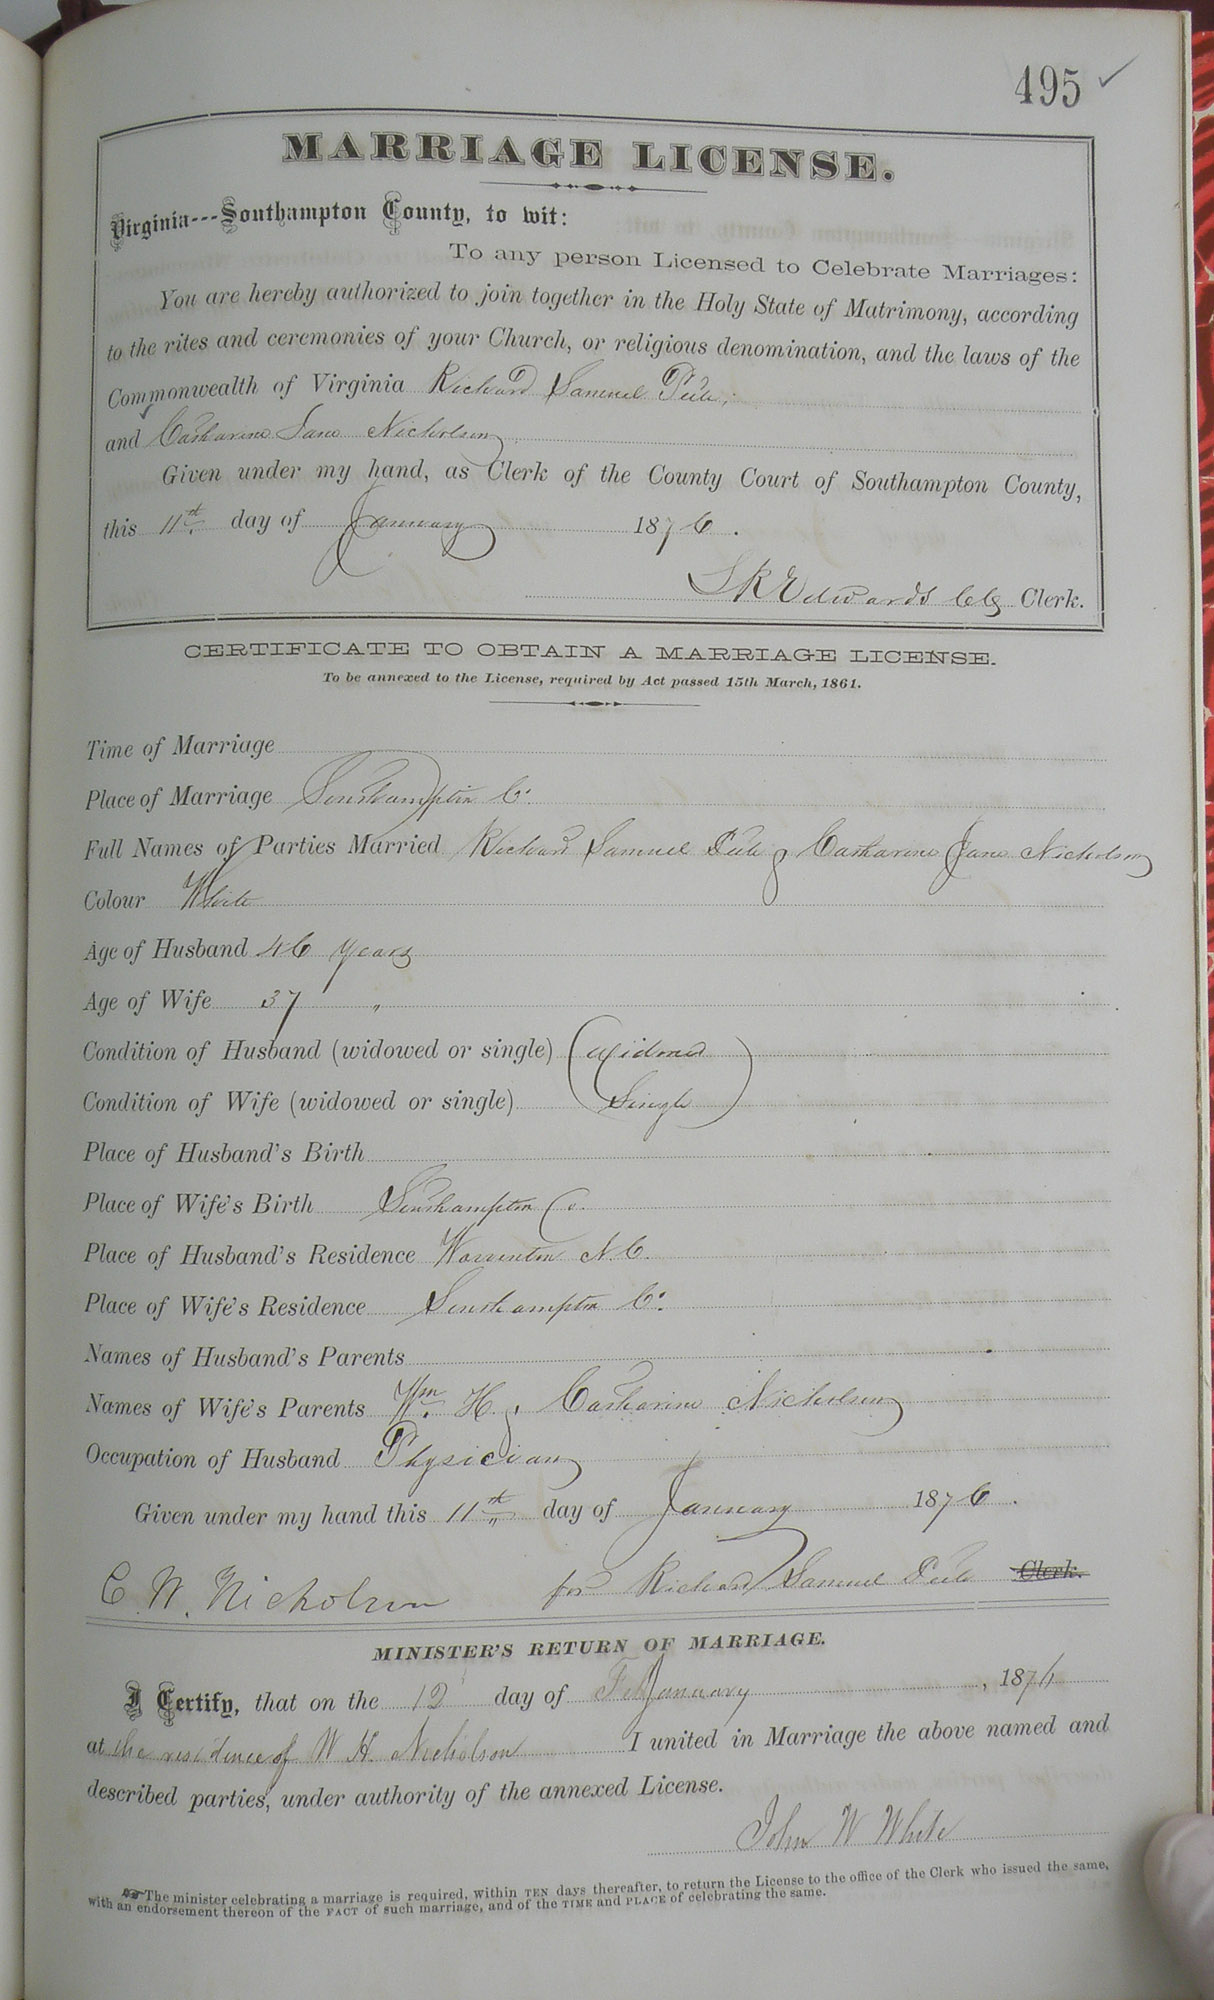 495 ✓
MARRIAGE LICENSE.
Virginia---Southampton County, to wit:
To any person Licensed to Celebrate Marriages:
You are hereby authorized to join together in the Holy State of Matrimony, according
to the rites and ceremonies of your Church, or religious denomination, and the laws of the
Commonwealth of Virginia Richard Samuel
and Catharine Jane Nicholson
Given under my hand, as Clerk of the County Court of Southampton County,
this 11th day of January 1876.
Edwards Clerk.
CERTIFICATE TO OBTAIN A MARRIAGE LICENSE.
To be annexed to the License, required by Act passed 15th March, 1861.
Time of Marriage
Place of Marriage Southampton Co.
Full Names of Parties Married Richard Samuel & Catharine Jane Nicholson
Colour White
Age of Husband 46 years
Age of Wife 37 "
Condition of Husband (widowed or single) (Widowed
Condition of Wife (widowed or single) Single)
Place of Husband's Birth
Place of Wife's Birth Southampton Co.
Place of Husband's Residence Warrenton N.C.
Place of Wife's Residence Southampton Co.
Names of Husband's Parents
Names of Wife's Parents Wm. H. & Catharine Nicholson
Occupation of Husband Physician
Given under my hand this 11th day of January 1876.
C W. Nicholson for Richard Samuel Clerk.
MINISTER'S RETURN OF MARRIAGE.
I Certify, that on the 12 day of January, 1876
at the residence of W H. Nicholson I united in Marriage the above named and
described parties, under authority of the annexed License.
John W White
The minister celebrating a marriage is required, within TEN days thereafter, to return the License to the office of the Clerk who issued the same,
with an endorsement thereon of the FACT of such marriage, and of the TIME and PLACE of celebrating the same.